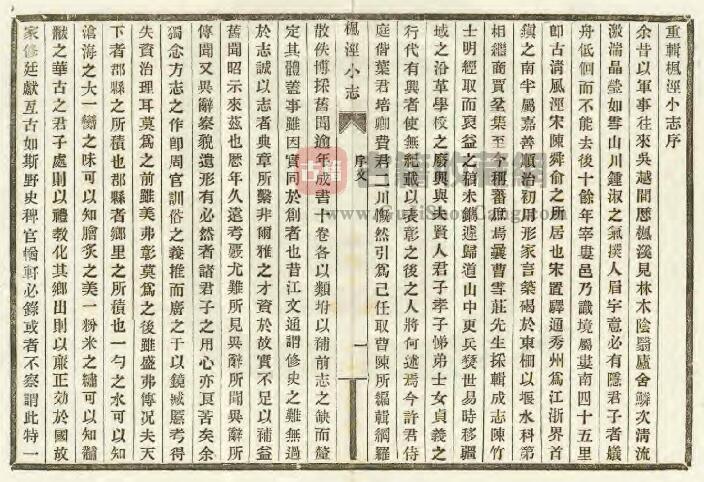 重輯楓涇小志序
余昔以軍事往來吳越間歷楓溪見林木陰翳廬舍鱗次清流
激湍晶瑩如雪山川鍾淑之氣撲人眉宇意必有隱君子者艤
舟低徊而不能去後十餘年宰婁邑乃識境屬婁南四十五里
卽古清風涇宋陳舜俞之所居也宋置驛通秀州爲江浙界首
鎭之南半屬嘉善順治初用形家言築碣於東柵以堰水科第
相繼商賈坌集至今稱蕃庶焉曩曹雪莊先生採輯成志陳竹
士明經取而裒益之稍未鐫遽歸道山中更兵燹世易時移疆
域之沿革學校之廢興與夫賢人君子孝子悌弟士女貞義之
行代有興者使無紀載以表彰之後之人將何述焉今許君侍
庭偕葉君培卿費君二川慨然引爲己任取曹陳所編輯網羅
楓涇小志 序文 一
散佚博採舊聞逾年成書十卷各以類坿以補前志之缺而釐
定其體蓋事雖因實同於創者也昔江文通謂修史之難無過
於志誠以志者典章所繫非爾雅之才資於故實不足以補益
舊聞昭示來茲也歷年久遠考覈尤難所見異辭所聞異辭所
傳聞又異辭察貌遺形有必然者諸君子之用心亦良苦矣余
獨念方志之作卽周官訓俗之義推而廣之于以鏡臧考得
失資治理耳莫爲之前雖美弗彰莫爲之後雖盛弗傳况夫天
下者郡縣之所積也郡縣者鄉里之所積也一勺之水可以知
滄海之大一臠之味可以知膾炙之美一粉米之繡可以知黼
黻之華古之君子處則以禮教化其鄉出則以廉正効於國故
家修廷獻亙古如斯野史稗官輶軒必錄或者不察謂此特一
古籍收藏網
www.GujiShouCang.com